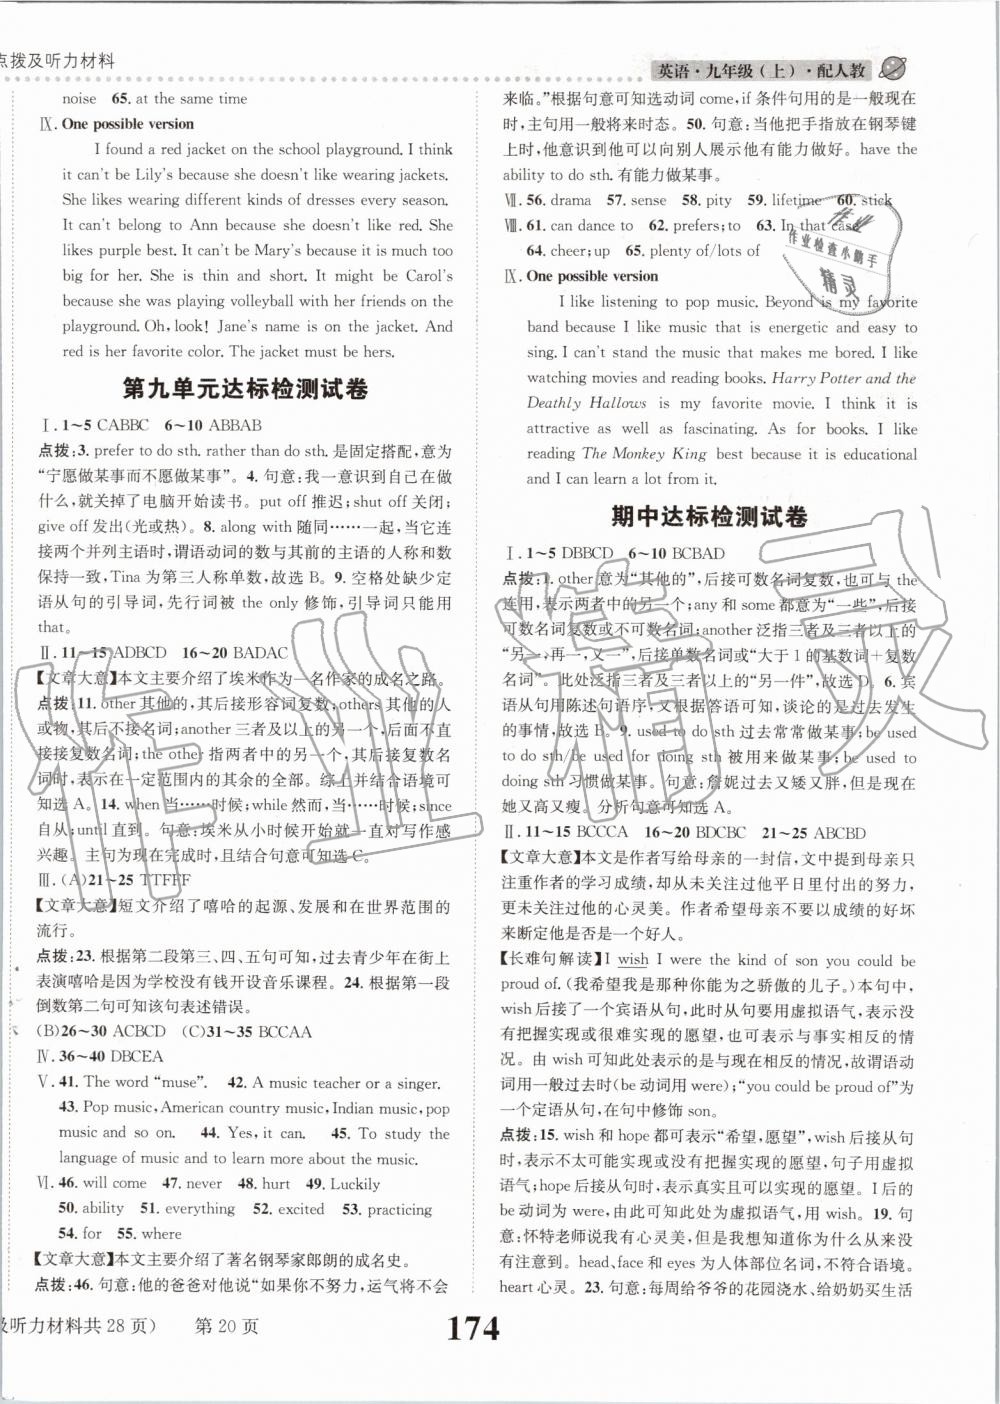 点拨及听力材料
英语·九年级(上)·配人教
noise 65. at the same time
Ⅸ. One possible version
I found a red jacket on the school playground. I think
it can't be Lily's because she doesn't like wearing jackets.
She likes wearing different kinds of dresses every season.
It can't belong to Ann because she doesn't like red. She
likes purple best. It can't be Mary's because it is much too
big for her. She is thin and short. It might be Carol's
because she was playing volleyball with her friends on the
playground. Oh, look! Jane's name is on the jacket. And
red is her favorite color. The jacket must be hers.
第九单元达标检测试卷
Ⅰ. 1~5 CABBC 6~10 ABBAB
点拨:3. prefer to do sth. rather than do sth. 是固定搭配,意为
“宁愿做某事而不愿做某事”。4. 句意:我一意识到自己在做
什么,就关掉了电脑开始读书。put off 推迟;shut off 关闭;
give off 发出(光或热)。8. along with 随同……一起,当它连
接两个并列主语时,谓语动词的数与其前面的主语的人称和数
保持一致,Tina 为第三人称单数,故选 B。9. 空格处缺少定
语从句的引导词,先行词被 the only 修饰,引导词只能用
that。
Ⅱ. 11~15 ADBCD 16~20 BADAC
【文章大意】本文主要介绍了埃米作为一名作家的成名之路。
点拨:11. other 其他的,其后接形容词复数;others 其他的人
或物,其后面不接名词;another 三者及以上的另一个,后面不直
接接复数名词;the other 指两者中的另一个,其后接复数名
词时,表示在一定范围内的其余的全部。综上并结合语境可
知选 A。14. when 当……时候;while 然而,当……时候;since
自从;until 直到。句意:埃米从小时候开始就一直对写作感
兴趣。主句为现在完成时,且结合句意可知选 C。
Ⅲ. (A)21~25 TTFFF
【文章大意】短文介绍了嘻哈的起源、发展和在世界范围的
流行。
点拨:23. 根据第二段第三、四、五句可知,过去青少年在街上
表演嘻哈是因为学校没有钱开设音乐课程。24. 根据第一段
倒数第二句可知该句表述错误。
(B)26~30 ACBCD (C)31~35 BCCAA
Ⅳ. 36~40 DBCEA
Ⅴ. 41. The word “muse”. 42. A music teacher or a singer.
43. Pop music, American country music, Indian music, pop
music and so on. 44. Yes, it can. 45. To study the
language of music and to learn more about the music.
Ⅵ. 46. will come 47. never 48. hurt 49. Luckily
50. ability 51. everything 52. excited 53. practicing
54. for 55. where
【文章大意】本文主要介绍了著名钢琴家郎朗的成名史。
点拨:46. 句意:他的爸爸对他说“如果你不努力,运气将不会
来临。”根据句意可知选动词 come, if 条件句用的是一般现在
时,主句用一般将来时态。50. 句意:当他把手指放在钢琴键
上时,他意识到他可以向别人展示他有能力做好。have the
ability to do sth. 有能力做某事。
Ⅶ. 56. drama 57. sense 58. pity 59. lifetime 60. stick
Ⅷ. 61. can dance to 62. prefers; to 63. In that case
64. cheer; up 65. plenty of/lots of
Ⅸ. One possible version
I like listening to pop music. Beyond is my favorite
band because I like music that is energetic and easy to
sing. I can't stand the music that makes me bored. I like
watching movies and reading books. Harry Potter and the
Deathly Hallows is my favorite movie. I think it is
attractive as well as fascinating. As for books. I like
reading The Monkey King best because it is educational
and I can learn a lot from it.
期中达标检测试卷
Ⅰ. 1~5 DBBCD 6~10 BCBAD
点拨:1. other 意为“其他的”,后接可数名词复数,也可与 the
连用,表示两者中的另一个;any 和 some 都意为“一些”,后接
可数名词复数或不可数名词;another 泛指三者及三者以上的
“另一,再一,又一”,后接单数名词或“大于 1 的基数词+复数
名词”。此处泛指三者及三者以上的“另一件”,故选 D。6. 宾
语从句用陈述句语序,又根据答语可知,谈论的是过去发生
的事情,故选 B。9. used to do sth 过去常常做某事;be used
to do sth/be used for doing sth 被用来做某事;be used to
doing sth 习惯做某事。句意:詹妮过去又矮又胖,但是现在
她又高又瘦。分析句意可知选 A。
Ⅱ. 11~15 BCCCA 16~20 BDCBC 21~25 ABCBD
【文章大意】本文是作者写给母亲的一封信,文中提到母亲只
注重作者的学习成绩,却从未关注过他平日里付出的努力,
更未关注过他的心灵美。作者希望母亲不要以成绩的好坏
来断定他是否是一个好人。
【长难句解读】I wish I were the kind of son you could be
proud of. (我希望我是那种你能为之骄傲的儿子。)本句中,
wish 后接了一个宾语从句,此从句要用虚拟语气,表示没
有把握实现或很难实现的愿望,或表示与事实相反的情
况。由 wish 可知此处表示的是与现在相反的情况,故谓语动
词用一般过去时(be 动词用 were);“you could be proud of”为
一个定语从句,在句中修饰 son。
点拨:15. wish 和 hope 都可表示“希望,愿望”,wish 后接从句
时表示不太可能实现或没有把握实现的愿望,句子用虚拟
语气;hope 后接从句时,表示真实且可以实现的愿望。I 后的
be 动词为 were,由此可知此处为虚拟语气,故选 A。19. 句
意:怀特老师说我有一个任何事物都无法企及的东西——美丽
的心灵。head, face 和 eyes 为人体部位名词,与语境不符。
heart 心灵。23. 句意:每周给爷爷的花园浇水、给奶奶买生活
及听力材料共 28 页) 第 20 页
174
作业
作业检查小助手
精灵
作业精灵